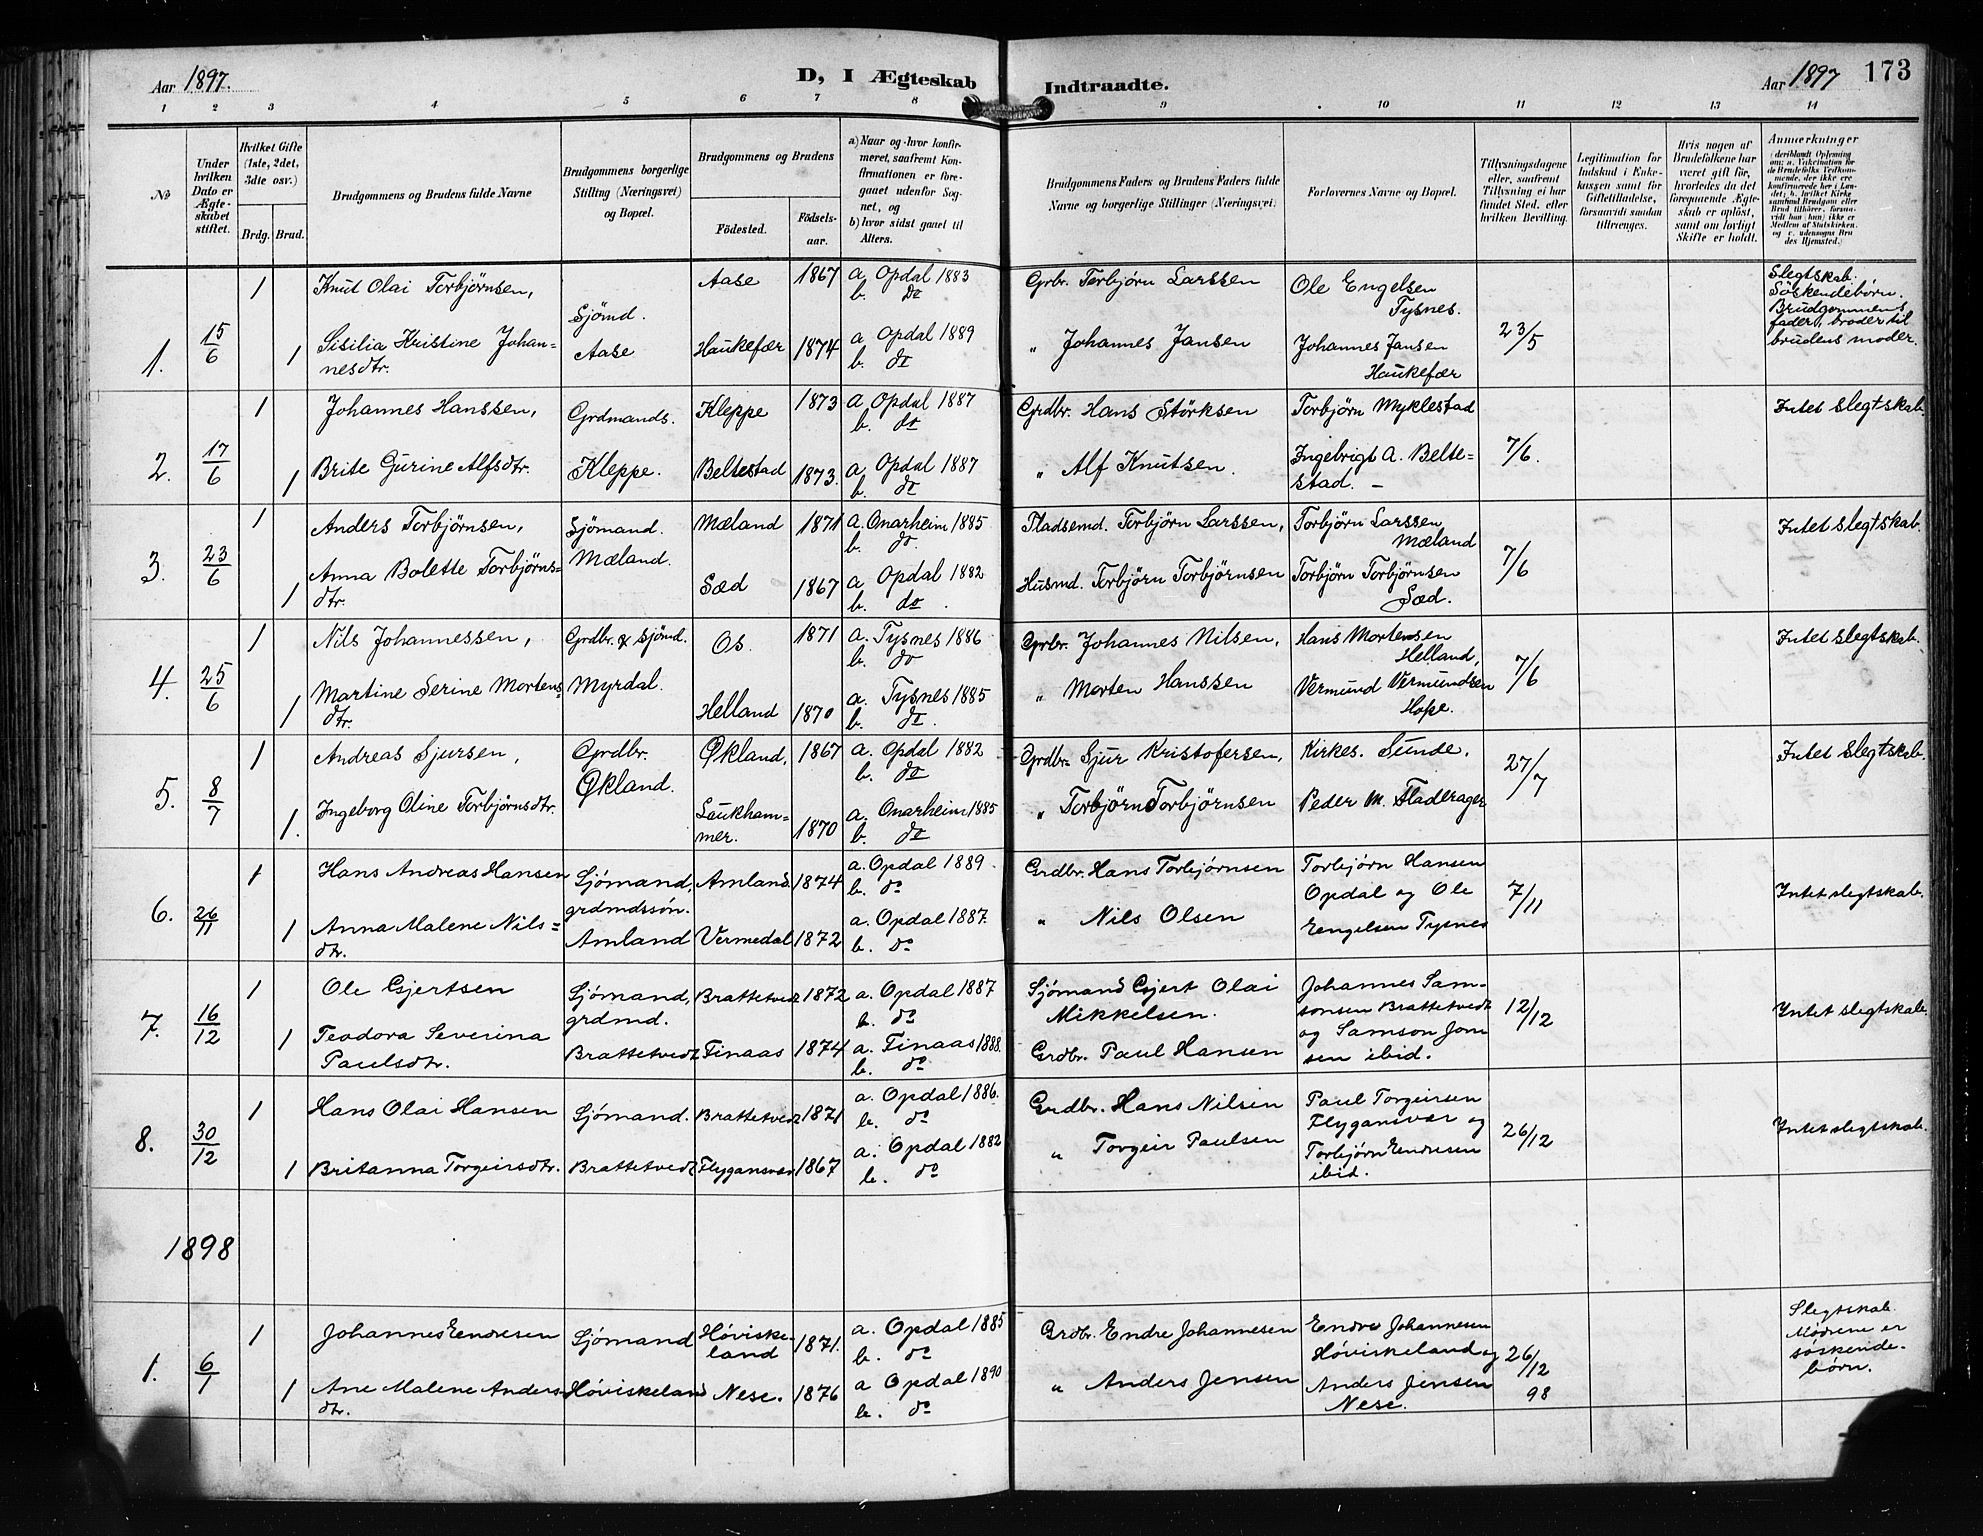 Aar 1897.
D, I Ægteskab
Indtraadte.
Aar 1897
173
1 2 3 4 5 6 7 8 9 10 11 12 13 14
№
Under hvilken Dato er Ægteskabet stiftet.
Hvilket Gifte (1ste, 2det, 3dte osv.)
Brdg. Brud.
Brudgommens og Brudens fulde Navne
Brudgommens borgerlige Stilling (Næringsvei) og Bopæl.
Brudgommens og Brudens
Födested.
Födselsaar.
a) Naar og hvor konfirmeret, saafremt Konfirmationen er foregaaet udenfor Sognet, og
b) hvor sidst gaaet til Alters.
Brudgommens Faders og Brudens Faders fulde Navne og borgerlige Stillinger (Næringsvei)
Forlovernes Navne og Bopæl.
Tillysningsdagene eller, saafremt Tillysning ei har fundet Sted, efter hvilken Bevilling.
Legitimation for Indskud i Enkekassen samt for Giftetilladelse, forsaavidt saadan tiltrænges.
Hvis nogen af Brudefolkene har været gift för, hvorledes da det foregaaende Ægteskab er oplöst, samt om lovligt Skifte er holdt.
Anmerkninger
1. 15/6
1
Knut Olai Torbjørnsen,
Sjömd.
Aase
Aase 1867 a. Opdal 1883
b. do
Grbr. Torbjörn Larssen
Ole Engelsen
Tysnes.
23/5
Slegtskab.
Söskendebörn.
Brudgommens
fader, broder til
brudens moder.
1
Sisilia Kristine Johan=
nesdtr.
Haukefær 1874 a Opdal 1889
b. do
" Johannes Jansen
Johannes Jansen
Haukefær
2. 17/6
1
Johannes Hanssen,
Grdmands.
Kleppe.
Kleppe 1873 a Opdal 1887
b. do
Grdbr. Hans Störksen
Torbjörn Myklestad
7/6.
Intet slegtskab.
1
Brite Gurine Alfsdtr.
Beltestad 1873. a. Opdal 1887
b. do
" Alf Knutsen.
Ingebrigt A. Belte=
stad. –
3. 23/6
1
Anders Torbjørnsen,
Sjömand.
Mæland.
Mæland 1871 a. Onarheim 1885
b. do.
Pladsemd. Torbjörn Larssen,
Torbjörn Larssen
Mæland
7/6
Intet slegtskab.
1
Anna Bolette Torbjörns=
dtr.
Sæd 1867 a. Opdal 1882
b. do.
Husmd. Torbjörn Torbjörnsen
Torbjörn Torbjörnsen
Sæd.
4. 25/6
1
Nils Johannessen,
Grdbr. & sjömd.
Myrdal.
Os. 1871 a. Tysnes 1886
b. do
Grbr. Johannes Nilsen,
Hans Mortensen
Helland,
7/6
Intet slegtskab.
1
Martine Serine Mortens=
dtr.
Helland 1870 a. Tysnes 1885
b. do.
" Morten Hanssen
Vermund Vermundsen
Hope.
5. 8/7
1
Andreas Sjursen,
Grdbr.
Økland.
Økland, 1867 a. Opdal 1882
b. do
Grdbr. Sjur Kristofersen,
Kirkes. Sunde.
27/7
Intet slegtskab.
1.
Ingeborg Oline Torbjörnsdtr.
Laukham=
mer. 1870 a. Onarheim 1885
b. do
" Torbjörn Torbjörnsen
Peder M. Fladerager
6. 26/11
1
Hans Andreas Hansen
Sjömand,
grdmdssön.
Amland
Amland 1874 a. Opdal 1889.
b. do
Grdbr. Hans Torbjørnsen
Torbjørn Hansen
Opdal og Ole
Engelsen Tysnes
7/11
Intet slegtskab.
1
Anna Malene Nils=
dtr.
Vermedal 1872 a. Opdal 1887.
b. do
" Nils Olsen
7. 16/12
1
Ole Gjertsen
Sjömand,
grdmd.
Brattetvedt
Brattetvedt 1872 a. Opdal 1887
b. do
Sjömand Gjert Olai
Mikkelsen.
Johannes Sam-
sonsen Brattetvedt
og Samson Jon
sen ibid.
12/12
Intet slegtskab.
1
Teodora Severina
Paulsdtr.
Finaas 1874 a. Finaas 1888.
b. do
Grdbr. Paul Hansen
8. 30/12
1
Hans Olai Hansen
Sjömand.
Brattetvedt
Brattetvedt 1871 a. Opdal 1886.
b. do
Grdbr. Hans Nilsen
Paul Torgeirsen
Flygansvær og
Torbjørn Endresen
ibid.
26/12
Intet slegtskab.
1
Britanna Torgeirsdtr.
Flygansvær 1867 a. Opdal 1882
b. do
" Torgeir Paulsen
1898
1. 6/1
1
Johannes Endresen
Sjömand
Höviskeland
Höviske-
land 1871. a. Opdal 1885
b. do
Grdbr. Endre Johannesen
Endre Johannesen
Höviskeland og
Anders Jensen
Nese.
26/12
98
Slegtskab.
Mödrene er
söskende-
børn.
1
Ane Malene Anders
dtr.
Nese. 1876 a Opdal 1890
b. do
" Anders Jensen